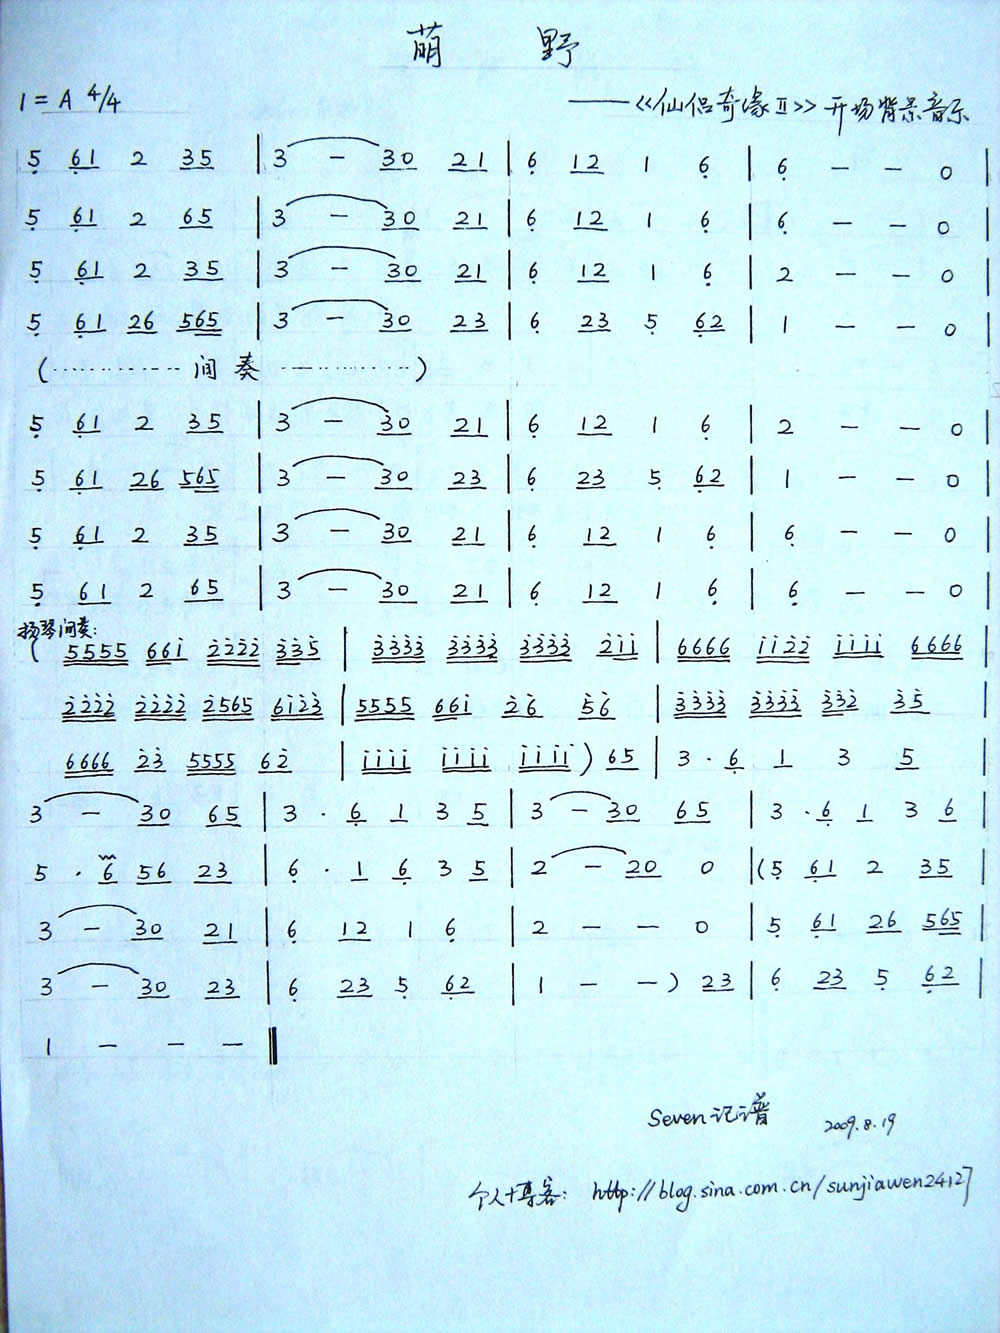 萌 野
1 = A 4/4 ——《仙侣奇缘Ⅱ》开场背景音乐
5 61 2 35 | 3 — 30 21 | 6 12 1 6 | 6 — — 0 |
5 61 2 65 | 3 — 30 21 | 6 12 1 6 | 6 — — 0 |
5 61 2 35 | 3 — 30 21 | 6 12 1 6 | 2 — — 0 |
5 61 26 565 | 3 — 30 23 | 6 23 5 62 | 1 — — 0 |
(············ 间奏 ············)
5 61 2 35 | 3 — 30 21 | 6 12 1 6 | 2 — — 0
5 61 26 565 | 3 — 30 23 | 6 23 5 62 | 1 — — 0
5 61 2 35 | 3 — 30 21 | 6 12 1 6 | 6 — — 0
5 61 2 65 | 3 — 30 21 | 6 12 1 6 | 6 — — 0
扬琴间奏:
( 5555 661 2222 335 | 3333 3333 3333 211 | 6666 1122 1111 6666
2222 2222 2565 6123 | 5555 661 26 56 | 3333 3333 332 35
6666 23 5555 62 | 1111 1111 1111 ) 65 | 3 · 6 1 3 5
3 — 30 65 | 3 · 6 1 3 5 | 3 — 30 65 | 3 · 6 1 3 6
5 · 6 56 23 | 6 · 1 6 3 5 | 2 — 20 0 | (5 61 2 35 |
3 — 30 21 | 6 12 1 6 | 2 — — 0 | 5 61 26 565 |
3 — 30 23 | 6 23 5 62 | 1 — — ) 23 | 6 23 5 62 |
1 — — — ‖
Seven记谱 2009.8.19
个人博客: http://blog.sina.com.cn/sunjiawen24127